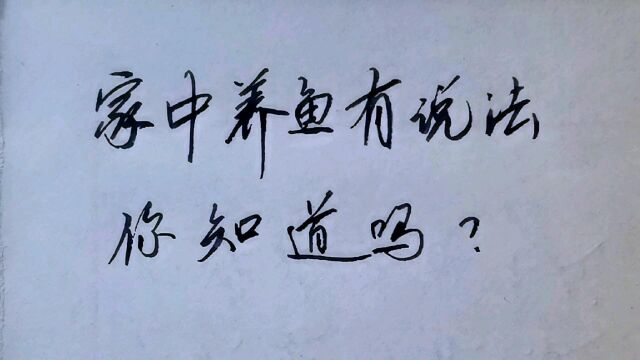 家中养鱼有说法
你知道吗？